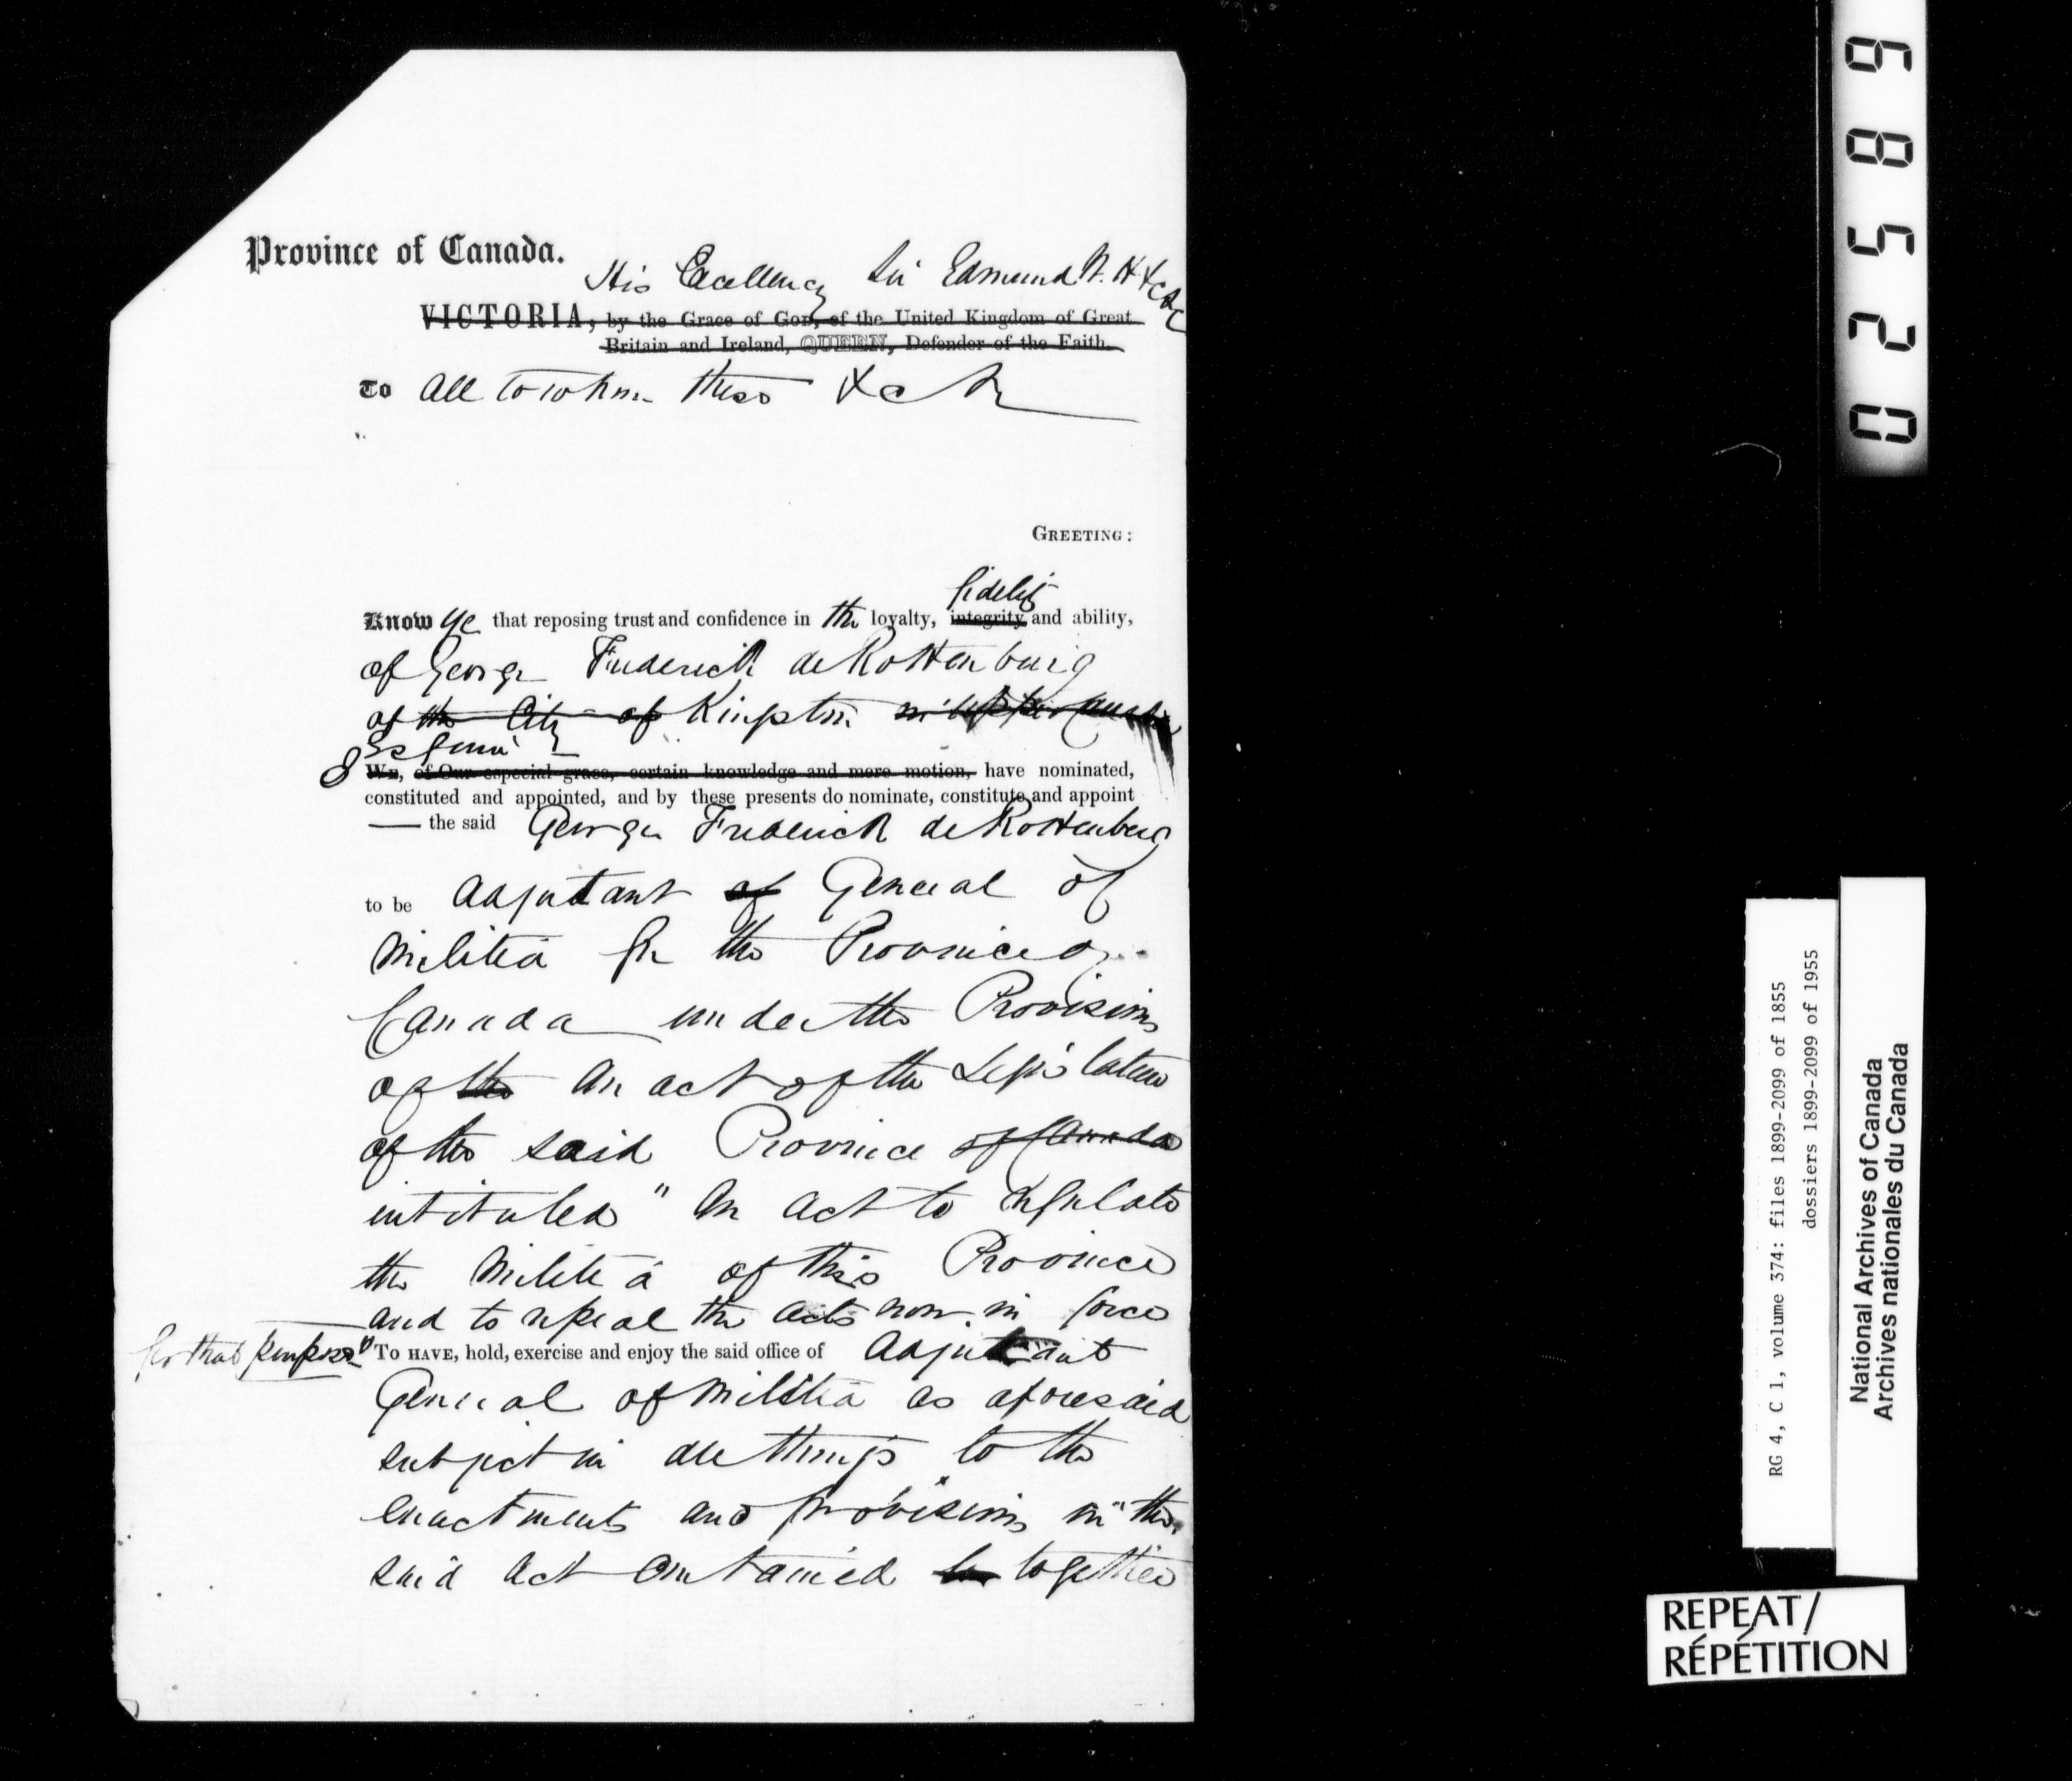 Province of Canada.
His Excellency Sir Edmund W. H &c &c
VICTORIA, by the Grace of GOD, of the United Kingdom of Great
Britain and Ireland, QUEEN, Defender of the Faith.
To All to whom these &c &c
GREETING:
fidelity
Know Ye that reposing trust and confidence in the loyalty, integrity and ability,
of George Frederick de Rottenburg
of the City of Kingston in Upper Canada
Esquire
I WE, of Our especial grace, certain knowledge and mere motion, have nominated,
constituted and appointed, and by these presents do nominate, constitute and appoint
— the said George Frederick de Rottenburg
to be Adjutant of General of
Militia for the Province of
Canada under the Provisions
of the An act of the Legislature
of the said Province of Canada
intituled " An Act to regulate
the Militia of this Province
and to repeal the Acts now in force
for that purpose" To HAVE, hold, exercise and enjoy the said office of Adjutant
General of Militia as aforesaid
subject in all things to the
enactments and provisions in the
said Act contained to together
0 2 5 8 9
RG 4, C 1, volume 374: files 1899-2099 of 1855
dossiers 1899-2099 of 1955
National Archives of Canada
Archives nationales du Canada
REPEAT/
RÉPÉTITION